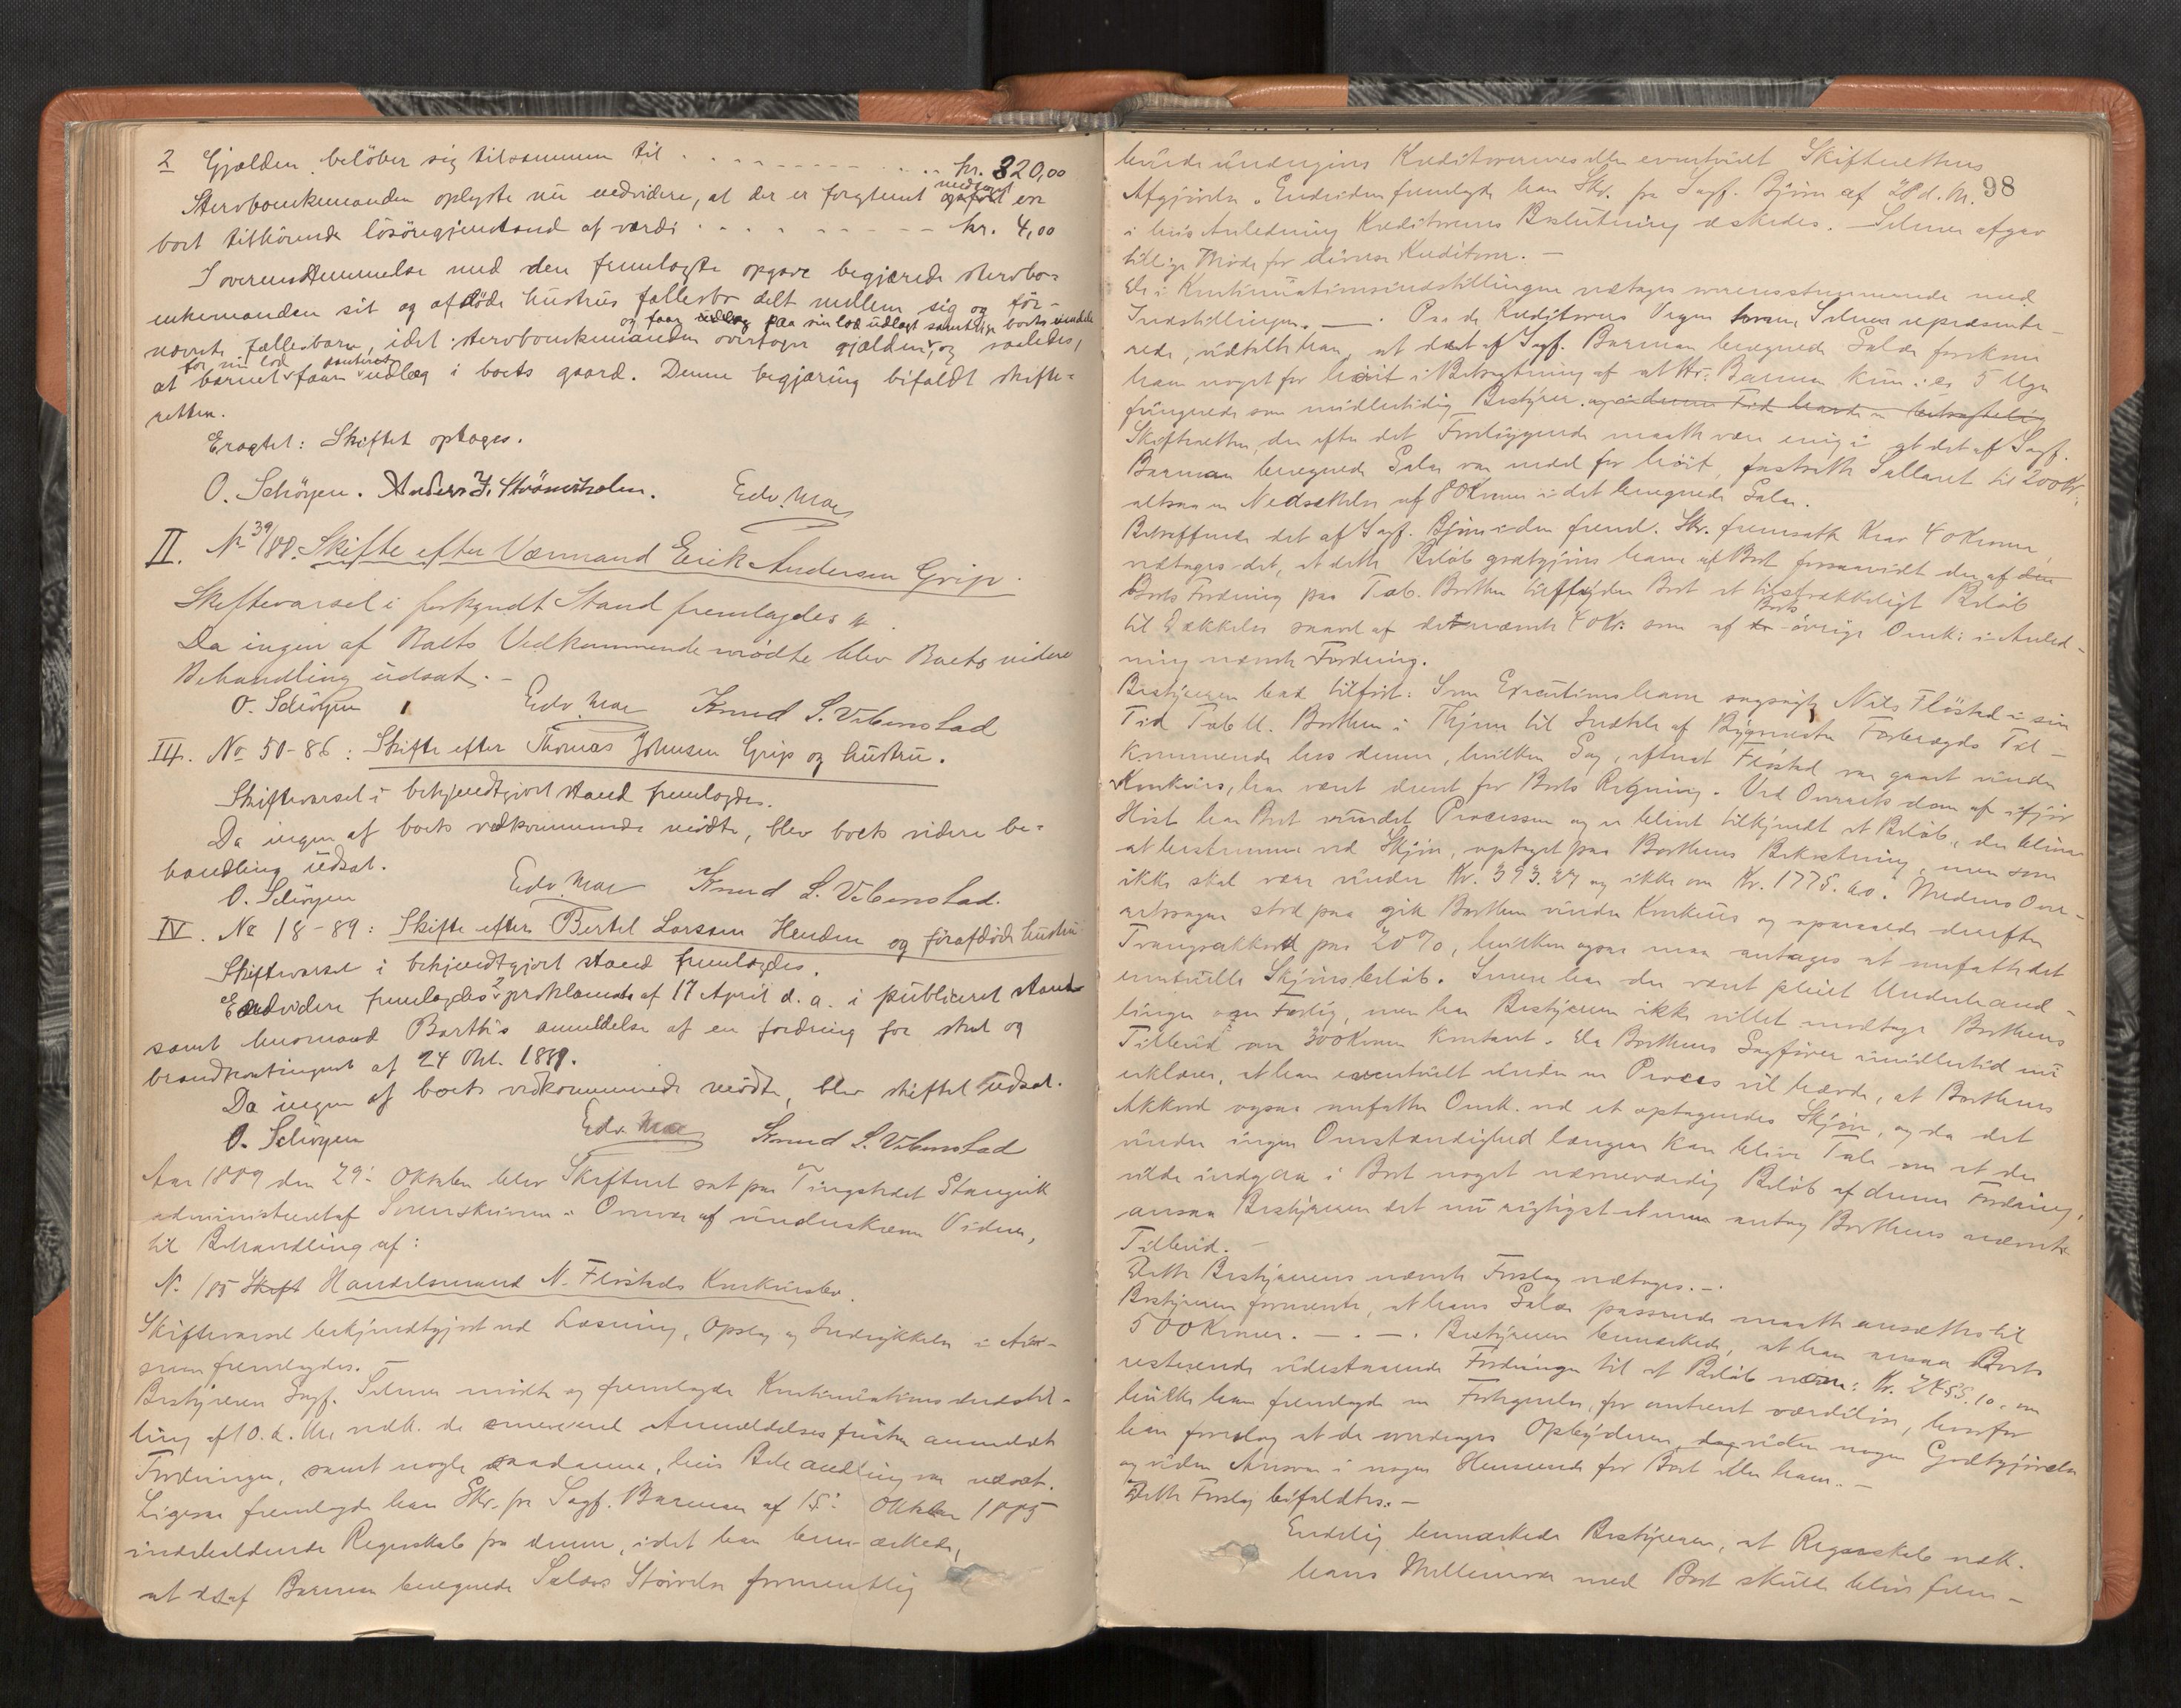 2 Gjælden belöber sig tilsammen til . . . . . . . . . . kr. 320,00
Stervboenkemanden oplyste nu vedvidere, at der er forglemt medtaget en
boet tilhörende lösöregjenstand af værdi . . . . . . . . . kr. 4,00
I overensstemmelse med den fremlagte opgave begjærede stervbo-
enkemanden sit og afdöde hustrus fællesbo delt mellem sig og för-
og faar paa sin lod udlagt samtlige boets eiendele
nævnte fællesbarn, idet stervboenkemanden overtager gjælden, og saaledes,
for sin lod
at barnet faar udlæg i boets gaard. Denne begjæring bifaldt skifte-
retten.
Eragtet: Skiftet optages.
O. Schöyen. Anders J. Strömsholm. Edv. Moe
II. No 39/88. Skifte efter Værmand Erik Andersen Grip.
Skiftevarsel i forkyndt Stand fremlagdes.
Da ingen af Boets Vedkommende mødte blev Boets videre
Behandling udsat. –
O. Schöyen Edv. Moe Knud S. Vebenstad
III. No 50-86: Skifte efter Thomas Johnsen Grip og hustru.
Skiftevarsel i bekjendtgjort stand fremlagdes.
Da ingen af boets vedkommende mödte, blev boets videre be-
handling udsat.
O. Schöyen Edv. Moe Knud S. Vebenstad.
IV. No 18-89: Skifte efter Bertel Larssen Henden og förafdöde hustru
Skiftevarsel i bekjendtgjort stand fremlagdes.
Endvidere fremlagdes 2 proklamata af 17 April d. a. i publiceret stand
samt lensmand Barth's anmeldelse af en fordring for skat og
brandkontingent af 24 Okt. 1889.
Da ingen af boets vedkommende mödte, blev skiftet udsat.
O. Schöyen Edv. Moe Knud S. Vebenstad
Aar 1889 den 29: Oktober blev Skifteret sat paa Tingstedet Stangvik
administreret af Sorenskriveren i Overvær af underskrevne Vidner,
til Behandling af:
No. 1/85 Skift Handelsmand N. Fløstads Konkursbo.
Skiftevarsel bekjendtgjort ved Læsning, Opslag og Indrykkelse i Avi-
sen fremlagdes. –
Bestyreren Sagf. Selmer mødte og fremlagde Kontinuationsindstil-
ling af 10. d. M. vedk. de senere end Anmeldelsesfristen anmeldte
Fordringer, samt nogle saadanne, hvis Behandling var udsat.
Ligesaa fremlagde han Skr. fra Sagf. Barman af 15: Oktober 1885
indeholdende Regnskab fra denne, idet han bemærkede,
at det af Barman beregnede Salærs Størrelse formentlig
98
burde undergives Kreditorernes eller eventuelt Skifterettens
Afgjørelse. Endvidere fremlagde han Skr. fra Sagf. Bjørn af 28 d. M.
i hvis Anledning Kreditorernes Beslutning æskedes. – Selmer afgav
tillige Møde for diverse Kreditorer. –
De i Kontinuationsindstillingen vedtages overensstemmende med
Indstillingen. – . Paa de Kreditorers Vegne hvem Selmer repræsente-
rede, udtalte han, at det af Sagf. Barman beregnede Salær forekom
ham noget for høit i Betragtning af at Hr. Barman kun i ca 5 Uger
fungerede som midlertidig Bestyrer.
Skifteretten, der efter det Foreliggende maatte være enig i at det af Sagf.
Barman beregnede Salær var meget for høit, fastsatte Sallæret til 200 Kr.
altsaa en Nedsættelse af 80 Kroner i det beregnede Salær.
Betræffende det af Sagf. Bjørn i den freml. Skr. fremsatte Krav 40 Kroner,
vedtages det, at dette Beløb godtgjøres ham af Boet forsaavidt der af den
Boets Fordring paa Tab. Borthen tilflyder Boet et tilstrækkeligt Beløb
til Dækkelse saavel af de nævnte 40 Kr. som af Boets øvrige Omk: i Anled-
ning nævnte Fordring.
Bestyreren bad tilført: Som Executionshaver sagsøgte Nils Fløstad i sin
Tid Tab U. Borthen i Thjem til Indtale af Bygmester Forberegds Til-
kommende hos denne, hvilken Sag, efterat Fløstad var gaaet under
Konkurs, har været drevet for Boets Regning. Ved Overretsdom af ifjor
Høst har Boet vundet Processen og er blevet tilkjendt et Beløb, der bliver
at bestemme ved Skjøn, optaget paa Borthens Bekostning, men som
ikke skal være under Kr. 393.27 og ikke over Kr. 1775.60. Medens Over-
retssagen stod paa gik Borthen under Konkurs og opnaaede derefter
Tvangsakkord paa 20 %, hvilken ogsaa maa antages at omfatte det
eventuelle Skjønsbeløb. Senere har der været pleiet Underhand-
linger om Forlig, men har Bestyreren ikke villet modtage Borthens
Tilbud om 300 Kroner kontant. Da Borthens Sagfører imidlertid nu
erklærer, at han eventuelt under en Proces vil hævde, at Borthens
Akkord ogsaa omfatter Omk. ved et optagendes Skjøn, og da det
under ingen Omstændighed længere kan blive Tale om at der
vilde indgaa i Boet noget nævneværdig Beløb af denne Fordring,
ansaa Bestyreren det nu rigtigst at man antog Borthens nævnte
Tilbud. –
Dette Bestyrerens nævnte Forslag vedtages. – .
Bestyreren formente, at hans Salær passende maatte ansættes til
500 Kroner. – . – . Bestyreren bemærkede, at han ansaa Boets
resterende udestaaende Fordringer til et Beløb nom: Kr. 2455.10, om
hvilke han fremlagde en Fortegnelse, for omtrent værdiløse, hvorfor
han foreslog at de overdrages Opbyderen, dog uden nogen Godtgjørelse
og uden Ansvar i nogen Henseende for Boet eller ham. –
Dette Forslag bifaldtes. –
Endelig bemærkede Bestyreren, at Regnskab vedk.
hans Mellemvær med Boet skulle blive frem-